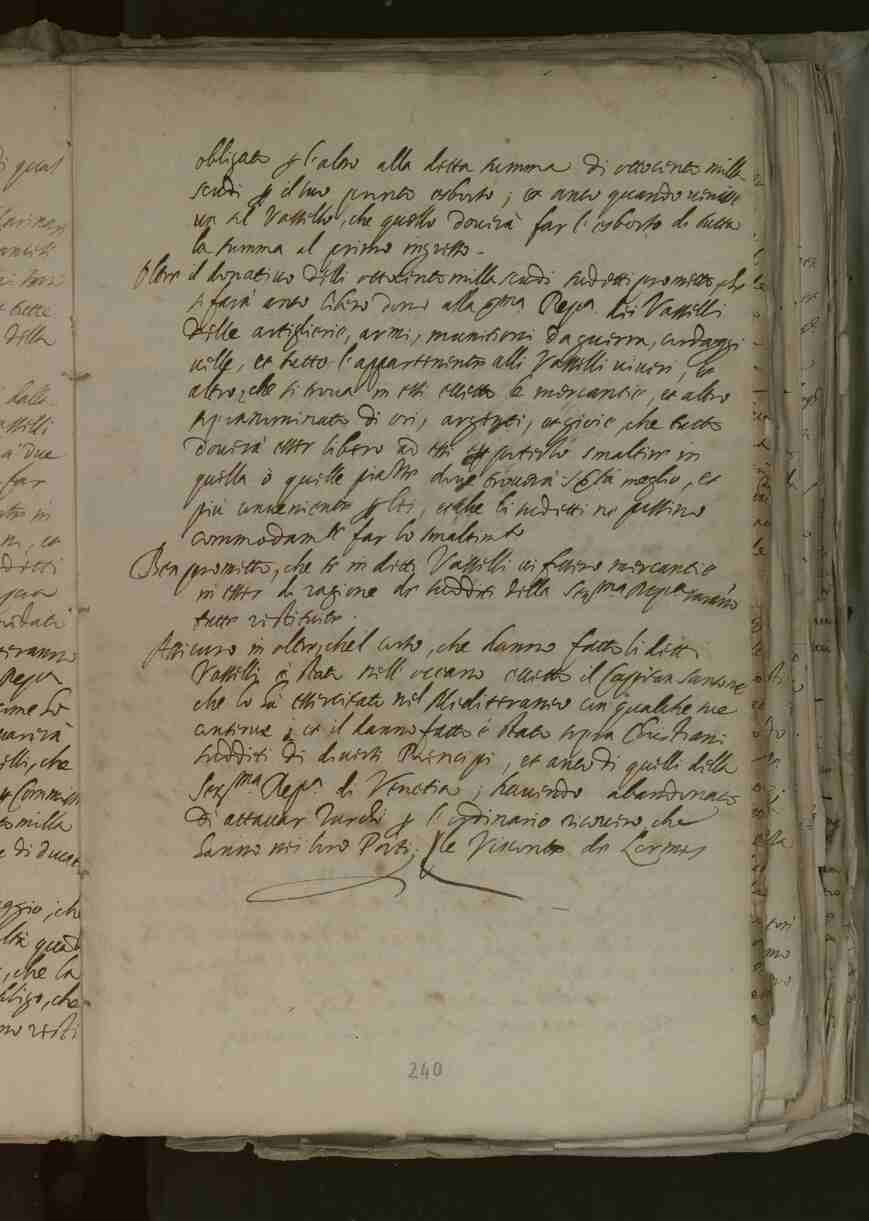 obligato p l'altro alla detta summa di ottocento mille
scudi p il suo pronto esborso; et anco quando venisse
un sol Vassello, che quello doverà far l'esborso di tutta
la summa al primo ingresso.
Oltra il donativo delli ottocento mille scudi sudetti prometto, che
si farà anco libero dono alla Repca. dei Vasselli
delle artiglierie, armi, munitioni da guerra, cordaggi
velle, et tutto l'appartenente alli Vasselli viveri, et
altro, che si trova in essi eccetto le mercantie, et altro
di ori, argenti, et gioie, che tutto
doverà esser libero ad essi et poterlo smaltire in
quella ò quelle piazze dove troverà meglio, et
più conveniente p lei, et che li sudetti ne possino
commodamte far lo smaltimento
Ben prometto, che se in detti Vasselli vi fussero mercantie
in esser di ragione de sudditi della Serma Repca saranno
tutte restituite.
Assicuro in oltre, che'l corso, che hanno fatto li detti
Vasselli è stato nell'occeano eccetto il Capitan Sansone
che lo hà essercitato nel Mediterraneo con qualche sue
et il danno fatto è stato sopra Christiani
sudditi di diversi Principi, et anco di quelli della
Serma Repca. di Venetia; havendo abandonato
di attacar Turchi p l'ordinario ricovero, che
hanno nei loro Porti. Le Viconte de Lormes
240